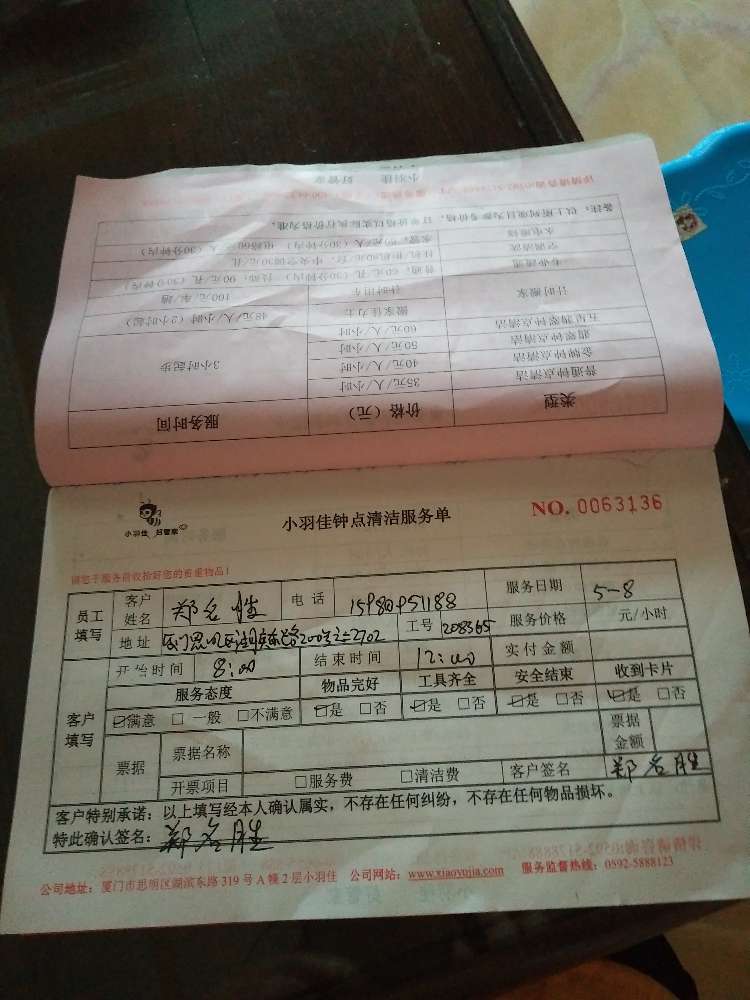 类型 价格（元） 服务时间
普通钟点清洁 35元/人/小时 3小时起步
金牌钟点清洁 40元/人/小时
翡翠钟点清洁 50元/人/小时
五星翡翠钟点清洁 60元/人/小时
计时搬家 搬家佳力士 48元/人/小时（2小时起）
计时用车 100元/车/趟
专业清洗
空调清洗
水电维修
备注：以上所列项目为参考价格，订单价格以实际执行价格为准。
小羽佳 好管家
小羽佳 好管家
小羽佳钟点清洁服务单
NO. 0063136
请您于服务前收拾好您的贵重物品！
员工填写 客户姓名 郑名胜 电话 服务日期 5-8
地址 工号 208365 服务价格 元/小时
客户填写 开始时间 8:00 结束时间 12:00 实付金额
服务态度 物品完好 工具齐全 安全结束 收到卡片
☑满意 □一般 □不满意 ☑是 □否 ☑是 □否 ☑是 □否 ☑是 □否
票据 票据名称 票据金额
开票项目 □服务费 □清洁费 客户签名 郑名胜
客户特别承诺：以上填写经本人确认属实，不存在任何纠纷，不存在任何物品损坏。
特此确认签名：郑名胜
公司地址：厦门市思明区湖滨东路319号A幢2层小羽佳 公司网站：www.xiaoyujia.com 服务监督热线：0592-5888123